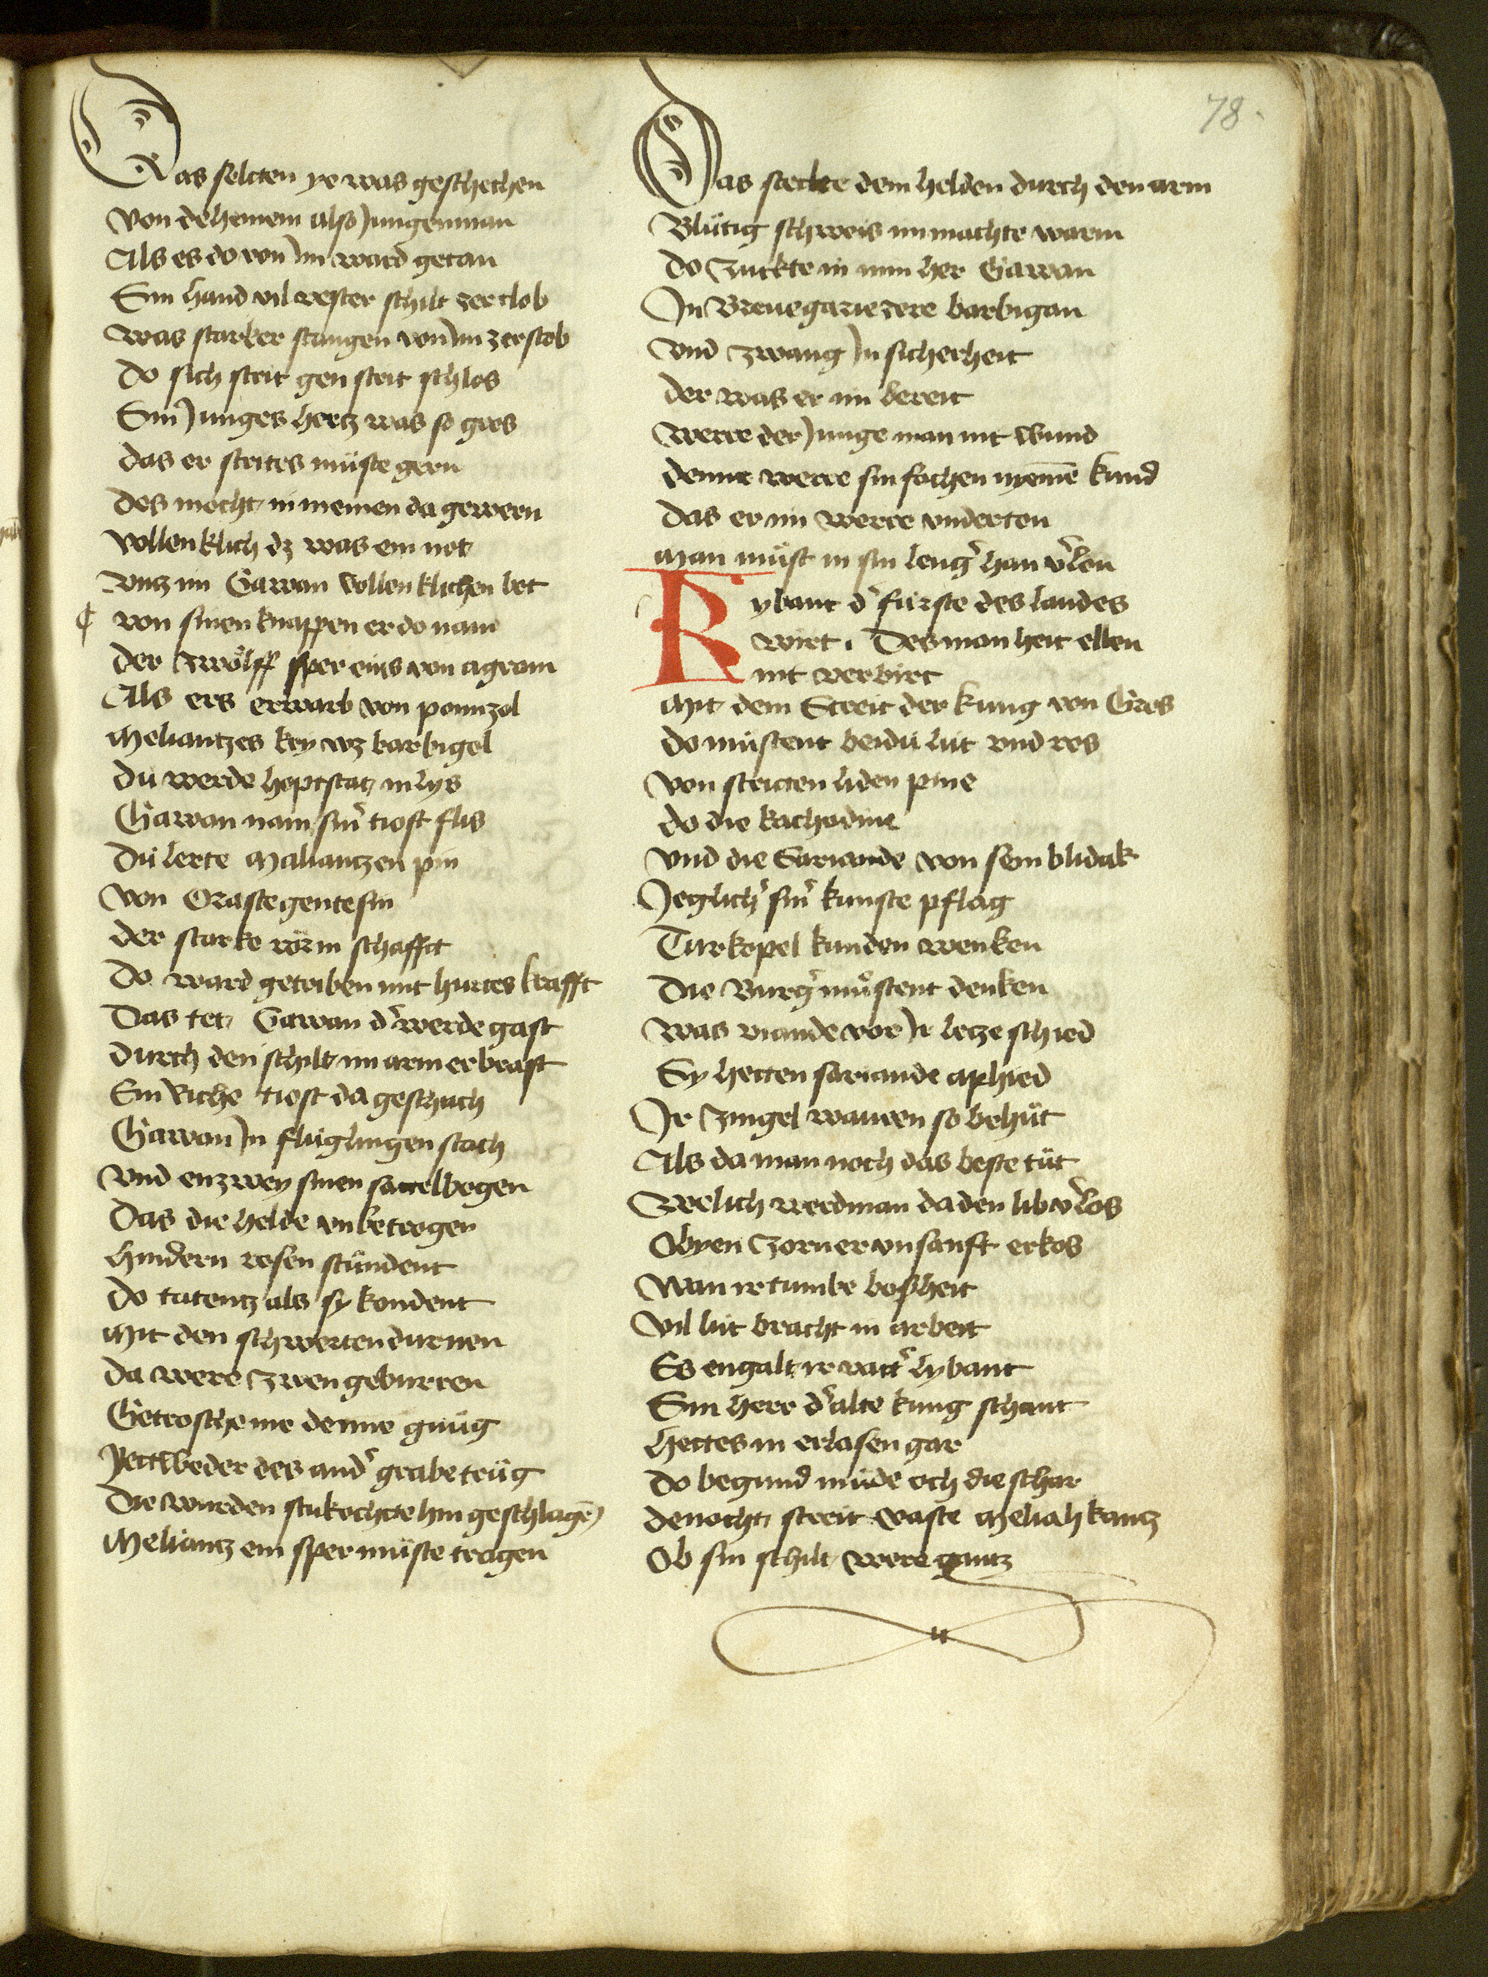 78
Das selcten ye was geschechen
Von dehemem also Jungenman
Als es do von Jm ward getan
Sin hand vil vester schilt zerclob
Was starker stangen von Jm zerstob
Do sich strit gen strit schlos
Sin Junges hertz was so gros
Das er strites müste gern
Des mocht in niemen da gewern
Vollenklich dz was ein not
Vntz im Gawan vollenklichen bot
¢ von sinen knappen er do nam
Der zwölff sper eins von agram
Als ers erwarb von ponnzol
Meliantzes kry wz barbigol
Dü werde hoptstat in lys
Gawan nam sinr tiost flis
Dü lerte Maliantzen pin
Von Orastegentesin
Der starke rörin schafft
Do ward getriben mit hurtes krafft
Das tet Gawan dr werde gast
Durch den schilt im arm erbrast
Ein Riche tiost da geschach
Gawan Jn flüglingen stach
Vnd enzwey sinen sattelbogen
Das die helde vnbetrogen
Hindern rosen stündent
Do tatentz als sy kondent
Mit den schwerten durnen
Da were zwen geburren
Getroschenne denne gnüg
Jettweder des andr grabe trüg
Die wurden stukochte hin geschlagē
Meliantz ein sper müste tragen
Das steckte dem helden durch den arm
Blütig schweis im machte warm
Do zuckte in min her Gawan
Jn Brenegariezere barbigan
Vnd zwang Jn sicherheit
Der was er im bereit
Werre der Junge man nit wund
Denne werre sin sochen nyemē kund
Das er im werre vnderton
Man müst in sin lengr han vrlon
Lybaut dr fürste des landes
wirt. Des manheit ellen
nit verbirt
Mit dem Streit der kung von Gros
Do müstent beidü lüt vnd ros
Von stritten liden pine
Do die kachodine
Vnd die Sariande von semblidak
Jeglichr sinr kunste pflag
Turkopel kunden wenken
Die Burgr müstent denken
Was viande vor Jr letze schied
Sy hetten sariande aphied
Jr zingel wauren so behüt
Als da man noch das beste tüt
Welich werdman da den lib vrlos
Obyen zorn er vnsanft erkos
Wan ir tumbe bosheit
Vil lüt bracht in arbeit
Es engalt ir vattr lybaut
Sin herr dr alte kung schaut
Hettes in erlasen gar
Do begund müde och die schar
Denocht streit vaste Meliahkantz
Ob sin schilt were gantz